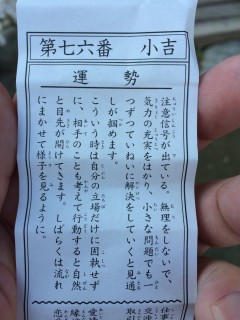 第七六番　小吉
運勢
注意信号が出ている。無理をしないで、
気力の充実をはかり、小さな問題でも一
つずつていねいに解決をしていくと見通
しが掴めます。
こういう時は自分の立場だけに固執せず
に、相手のことも考えて行動すると自然
と目先が開けてきます。しばらくは流れ
にまかせて様子を見るように。
仕事
交渉